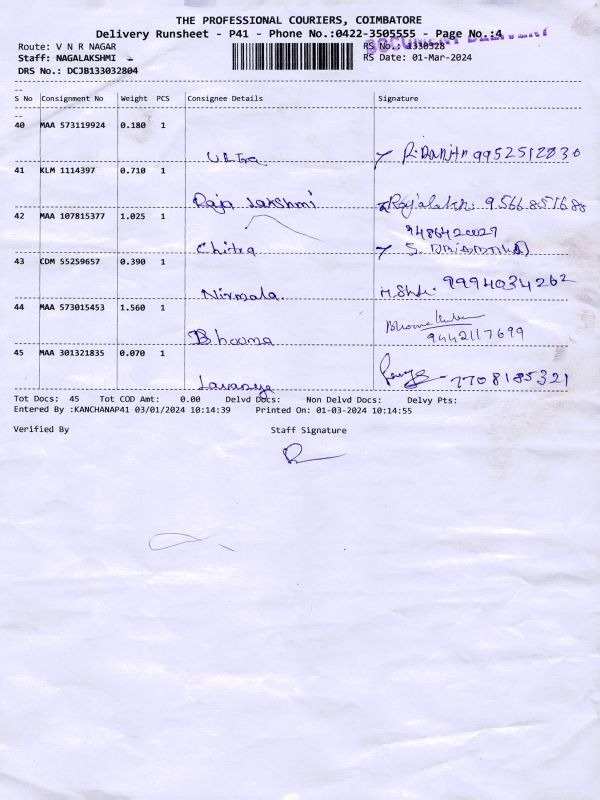 THE PROFESSIONAL COURIERS, COIMBATORE
Delivery Runsheet - P41 - Phone No.:0422-3505555 - Page No.:4
DOCUMENT DELIVERY
Route: V N R NAGAR
RS No.: 1330328
Staff: NAGALAKSHMI
RS Date: 01-Mar-2024
DRS No.: DCJB133032804
S No Consignment No Weight PCS Consignee Details Signature
40 MAA 573119924 0.180 1
9952512830
41 KLM 1114397 0.710 1
Raja Lakshmi Rajalakshmi 9566851688
42 MAA 107815377 1.025 1
9486420027
Chitra
43 CDM 55259657 0.390 1
Nirmala. 9994034262
44 MAA 573015453 1.560 1
Bhooma 9442117699
45 MAA 301321835 0.070 1
Lavanya 7708185321
Tot Docs: 45 Tot COD Amt: 0.00 Delvd Docs: Non Delvd Docs: Delvy Pts:
Entered By :KANCHANAP41 03/01/2024 10:14:39 Printed On: 01-03-2024 10:14:55
Verified By Staff Signature